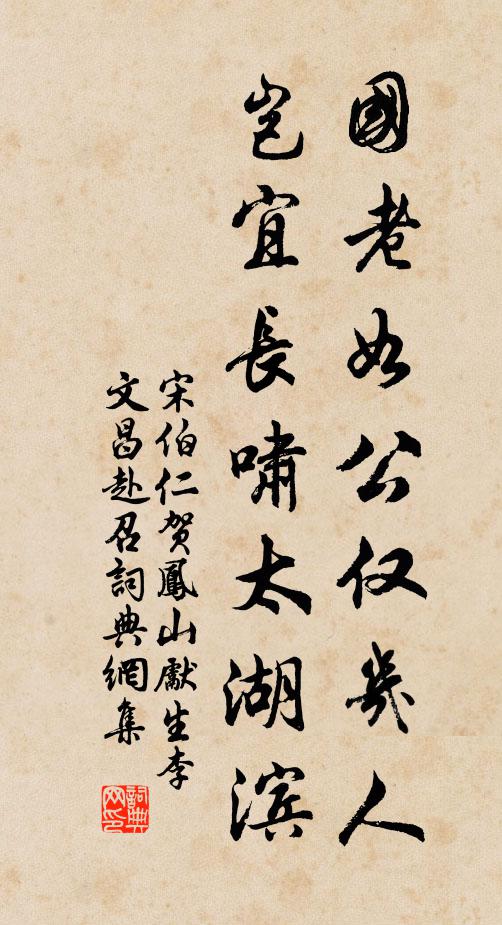 國老如公仅幾人
岂宜長啸太湖滨
宋伯仁贺鳳山獻生李
文昌赴召詞典網集
詞典网印